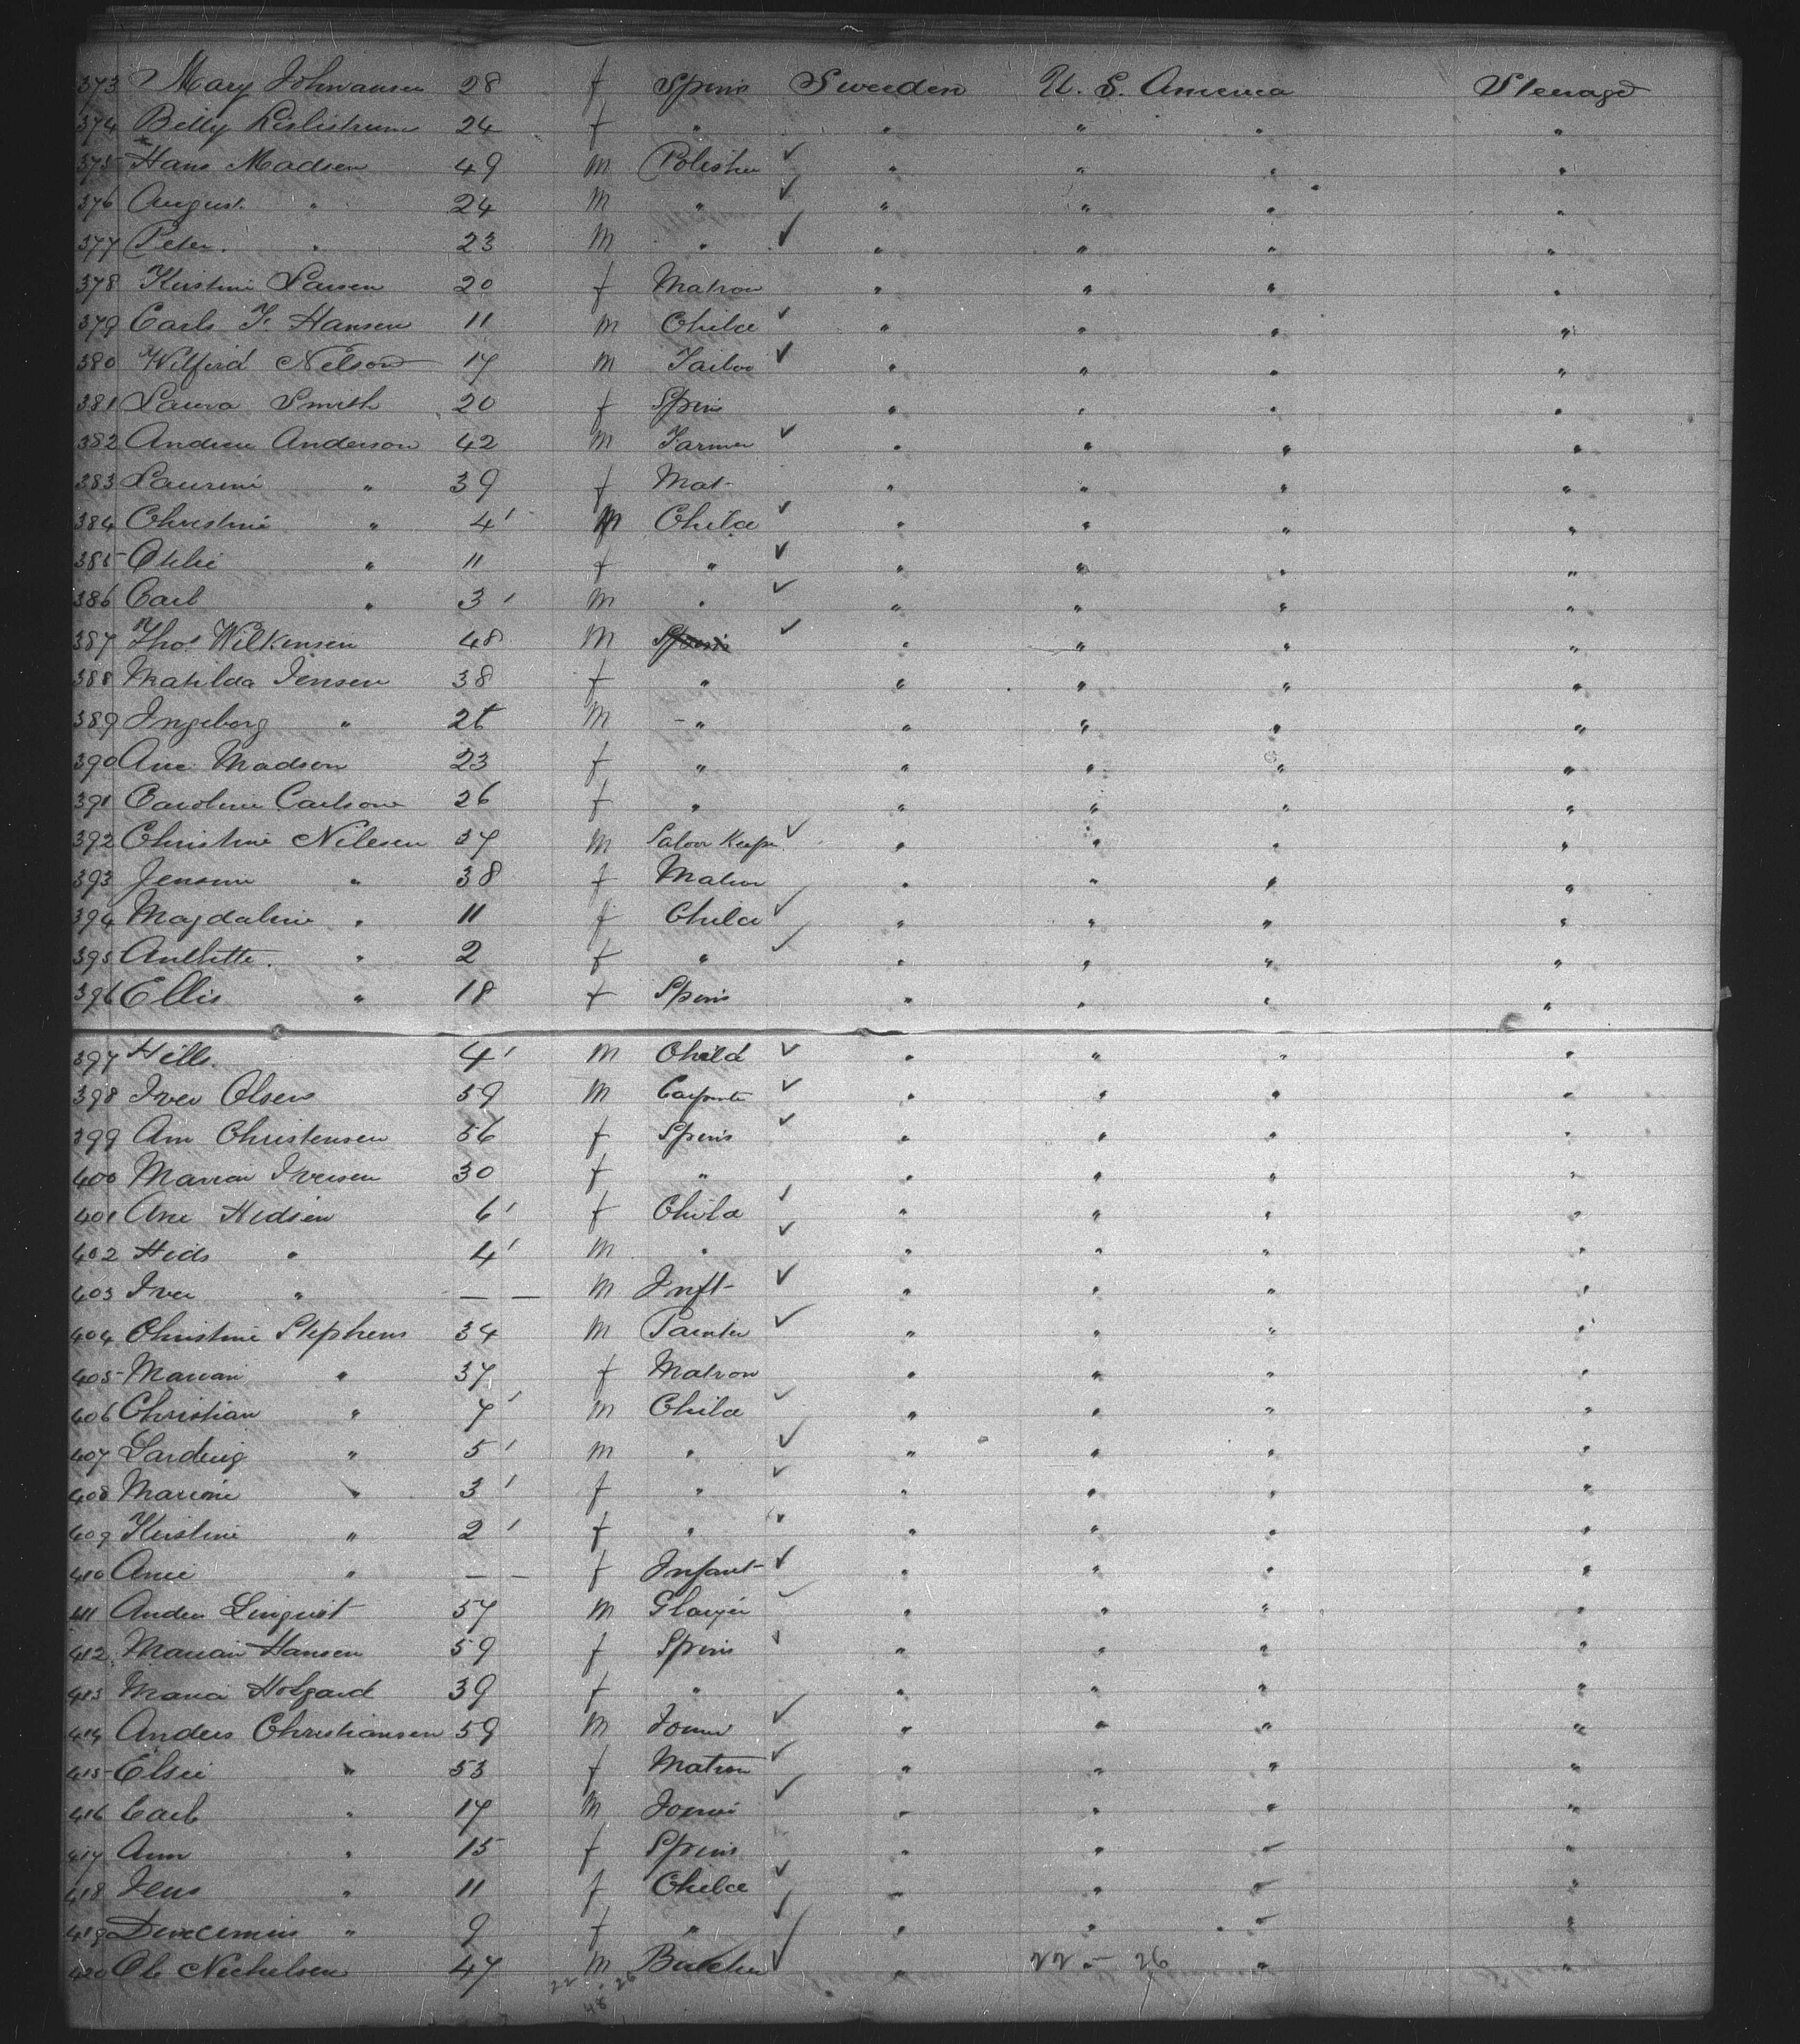 373 Mary Johnansen 28 f Spins Sweeden U. S. America Steerage
374 Betty 24 f " " " " "
375 Hans Madsen 49 m Polisher ✓ " " " "
376 August " 24 m " ✓ " " " "
377 Peter " 23 m " ✓ " " " "
378 Kirstine Larsen 20 f Matron " " " "
379 Carls F. Hansen 11 m Child ✓ " " " "
380 Wilfird Nelson 17 m Tailor ✓ " " " "
381 Laura Smith 20 f Spins " " " "
382 Andrew Anderson 42 m Farmer ✓ " " " "
383 Laurine " 39 f Mat- " " " "
384 Christine " 4' m Child ✓ " " " "
385 Otilie " 11 f " ✓ " " " "
386 Carl " 3' m " ✓ " " " "
387 Thos Wilkinsen 48 m Spins ✓ " " " "
388 Matilda Jensen 38 f " " " " "
389 Ingeborg " 2t m - " " " " "
390 Ane Madson 23 f " " " " "
391 Caroline Carlsone 26 f " " " " "
392 Christine Nilesen 37 m Saloon Keeper ✓ " " " "
393 Jensine " 38 f Matron " " " "
394 Magdaline " 11 f Child ✓ " " " "
395 " 2 f " ✓ " " " "
396 Ellis " 18 f Spins " " " "
397 Hills 4' m Child ✓ " " " "
398 Iver Olsen 59 m Carpenter ✓ " " " "
399 Ann Christensen 56 f Spins ✓ " " " "
400 Marian Iversen 30 f " " " " "
401 Ane Hidsen 6' f Child ✓ " " " "
402 Hids " 4' m " ✓ " " " "
403 Iver " — — m Inft- ✓ " " " "
404 Christine Stephens 34 m Painter ✓ " " " "
405 Marian " 37 f Matron " " " "
406 Christian " 7' m Child ✓ " " " "
407 " 5' m " ✓ " " " "
408 Marione " 3' f " ✓ " " " "
409 Kirstine " 2' f " ✓ " " " "
410 Anie " — — f Infant- ✓ " " " "
411 Anders Linquist 57 m ✓ " " " "
412 Marian Hansen 59 f Spins ✓ " " " "
413 Maria Holgard 39 f " " " " "
414 Anders Christiansen 59 m Joiner ✓ " " " "
415 Elsie " 53 f Matron ✓ " " " "
416 Carl " 17 m Joiner ✓ " " " "
417 Ann " 15 f Spins " " " "
418 Jens " 11 f Child ✓ " " " "
419 " 9 f " ✓ " " " "
420 Ole Nichelsen 47 m Butcher ✓ " 22 - 26 " "
22 . 26
48